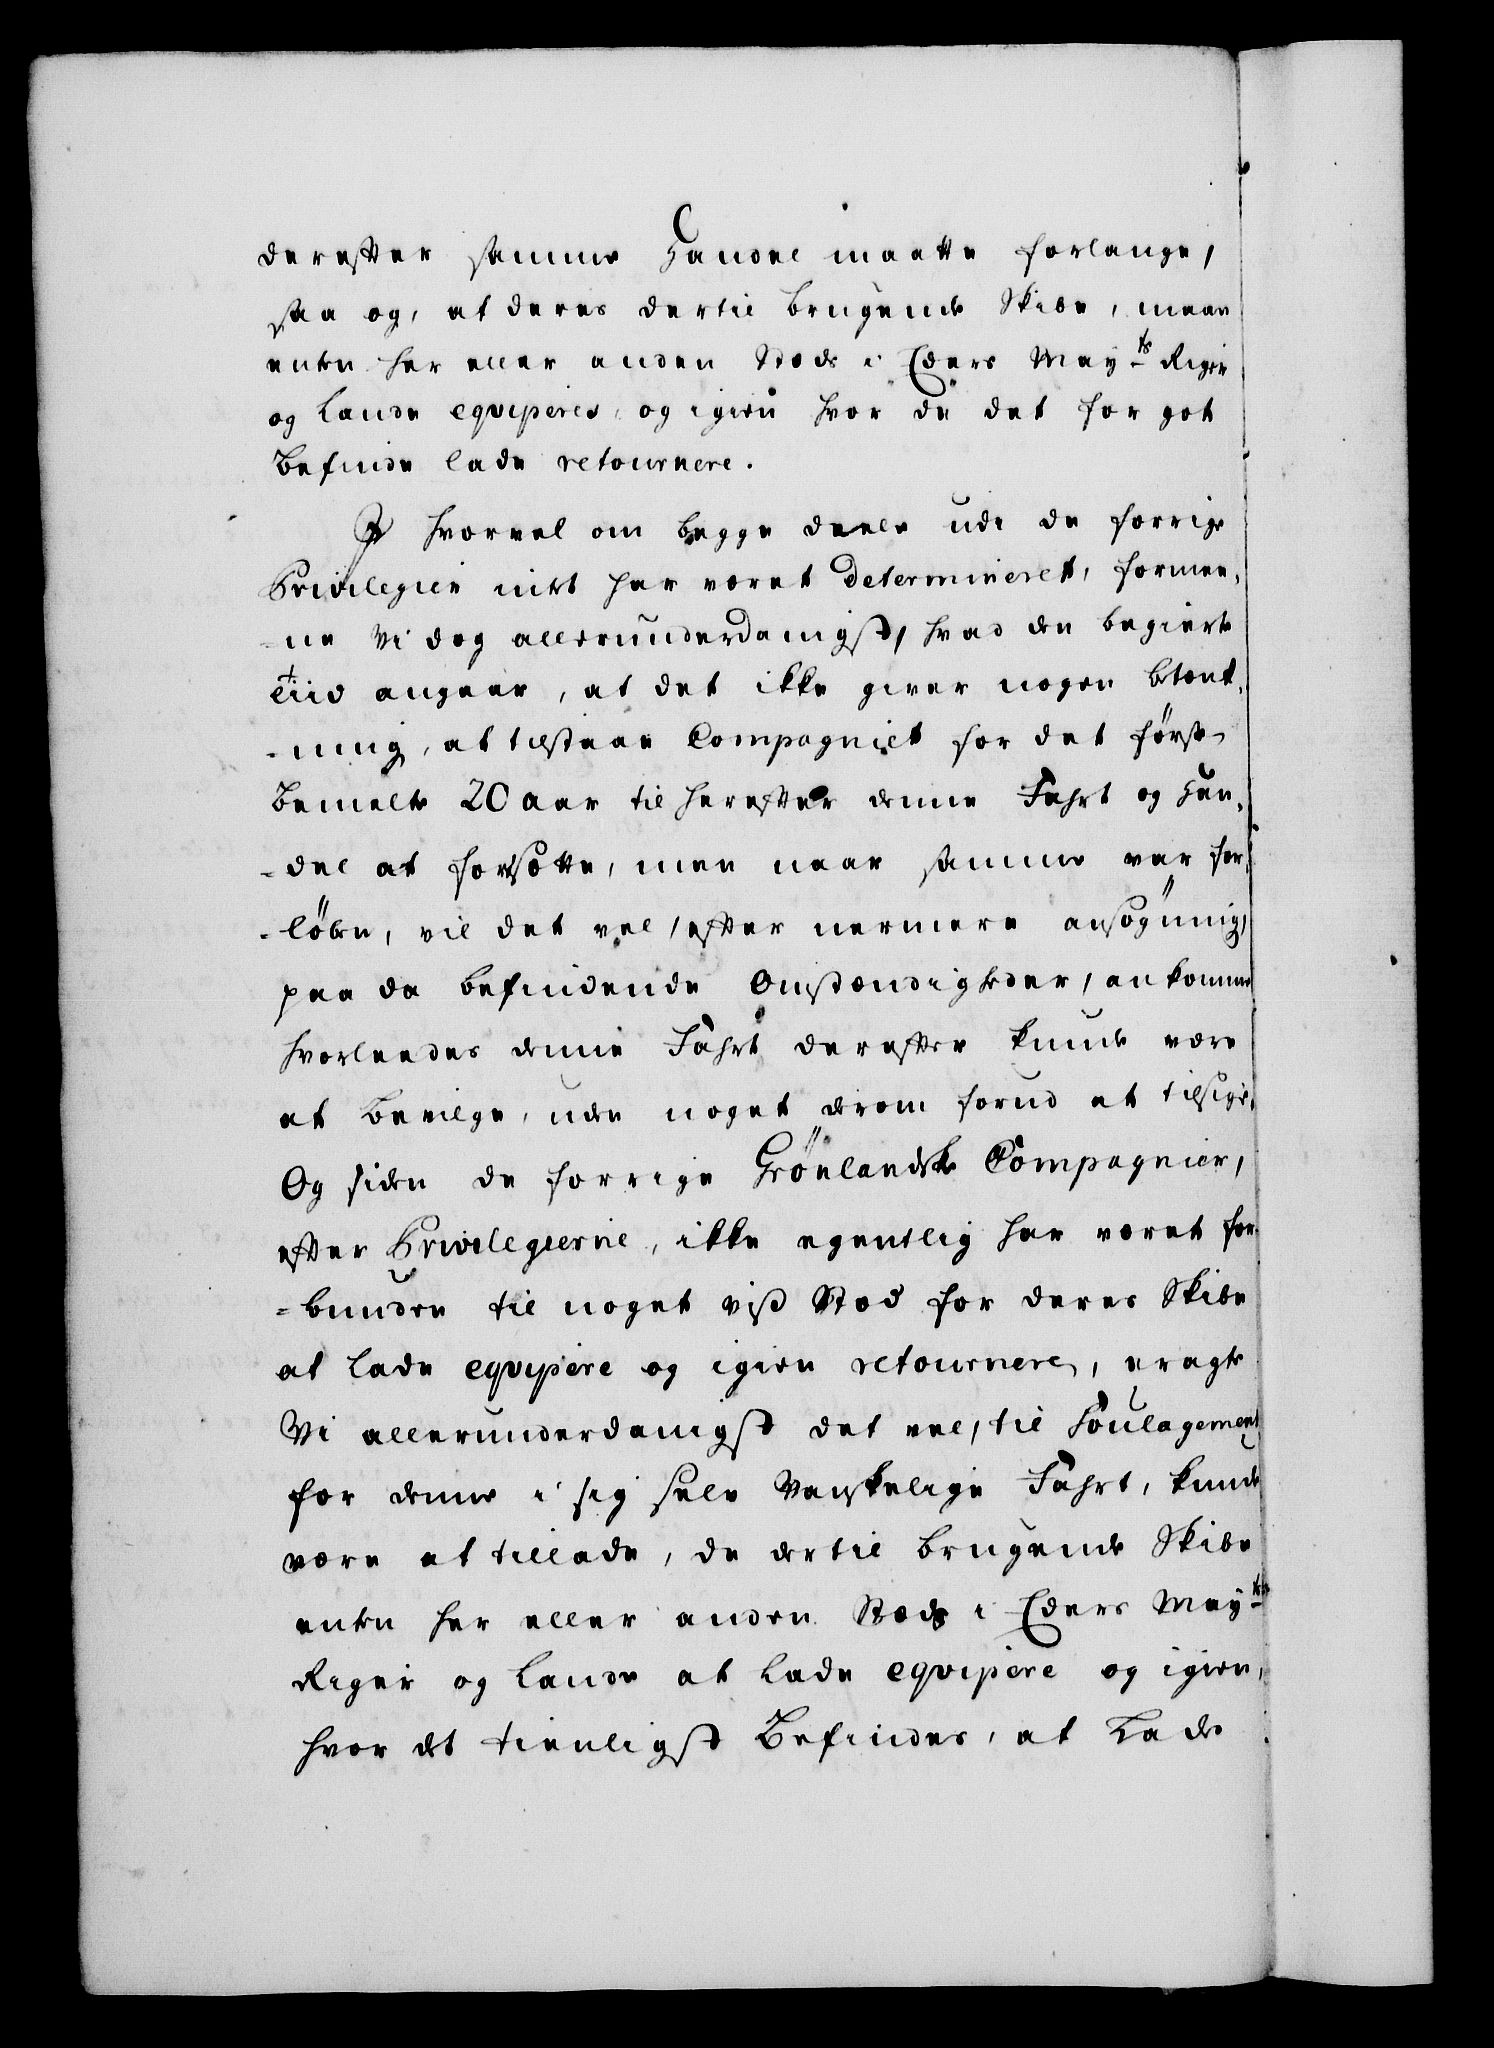 derefter samme Handel maatte forlange,
saa og, at deres dertil brugende Skibe, maae
enten her eller anden Stæds i Eders May.ts Riger
og Lande equiperes, og igien hvor de det for got
befinde lade retournere.
I hvorvel om begge deele udi de forrige
Privilegier intet har været determineret, formee-
-ne Vi dog allerunderdanigst, hvad den begierte
tiid angaaer, at det ikke giver nogen betænk-
-ning, at tilstaae Compagniet for det først-
bemelte 20 aar til herefter denne Fahrt og Han-
-del at forsætte, men naar samme var for-
-löben, vil det vel, efter nermere ansögning,
paa da befindende Omstændigheder, ankomme
hvorleedes denne Fahrt derefter kunde være
at bevilge, uden noget derom forud at tilsige.
Og siden de forrige Grönlandske Compagnier,
efter Privilegierne, ikke egentlig har været for-
-bunden til noget vist Stæd for deres Skibe
at lade equipere og igien retournere, eragte
Vi allerunderdanigst det vel, til Soulagement
for denne i sig selv Vanskelige Fahrt, kunde
være at tillade, de dertil brugende Skibe
enten her eller anden Stæds i Eders May.ts
Riger og Lande at lade equipere og igien,
hvor det tienligst befindes, at Lade